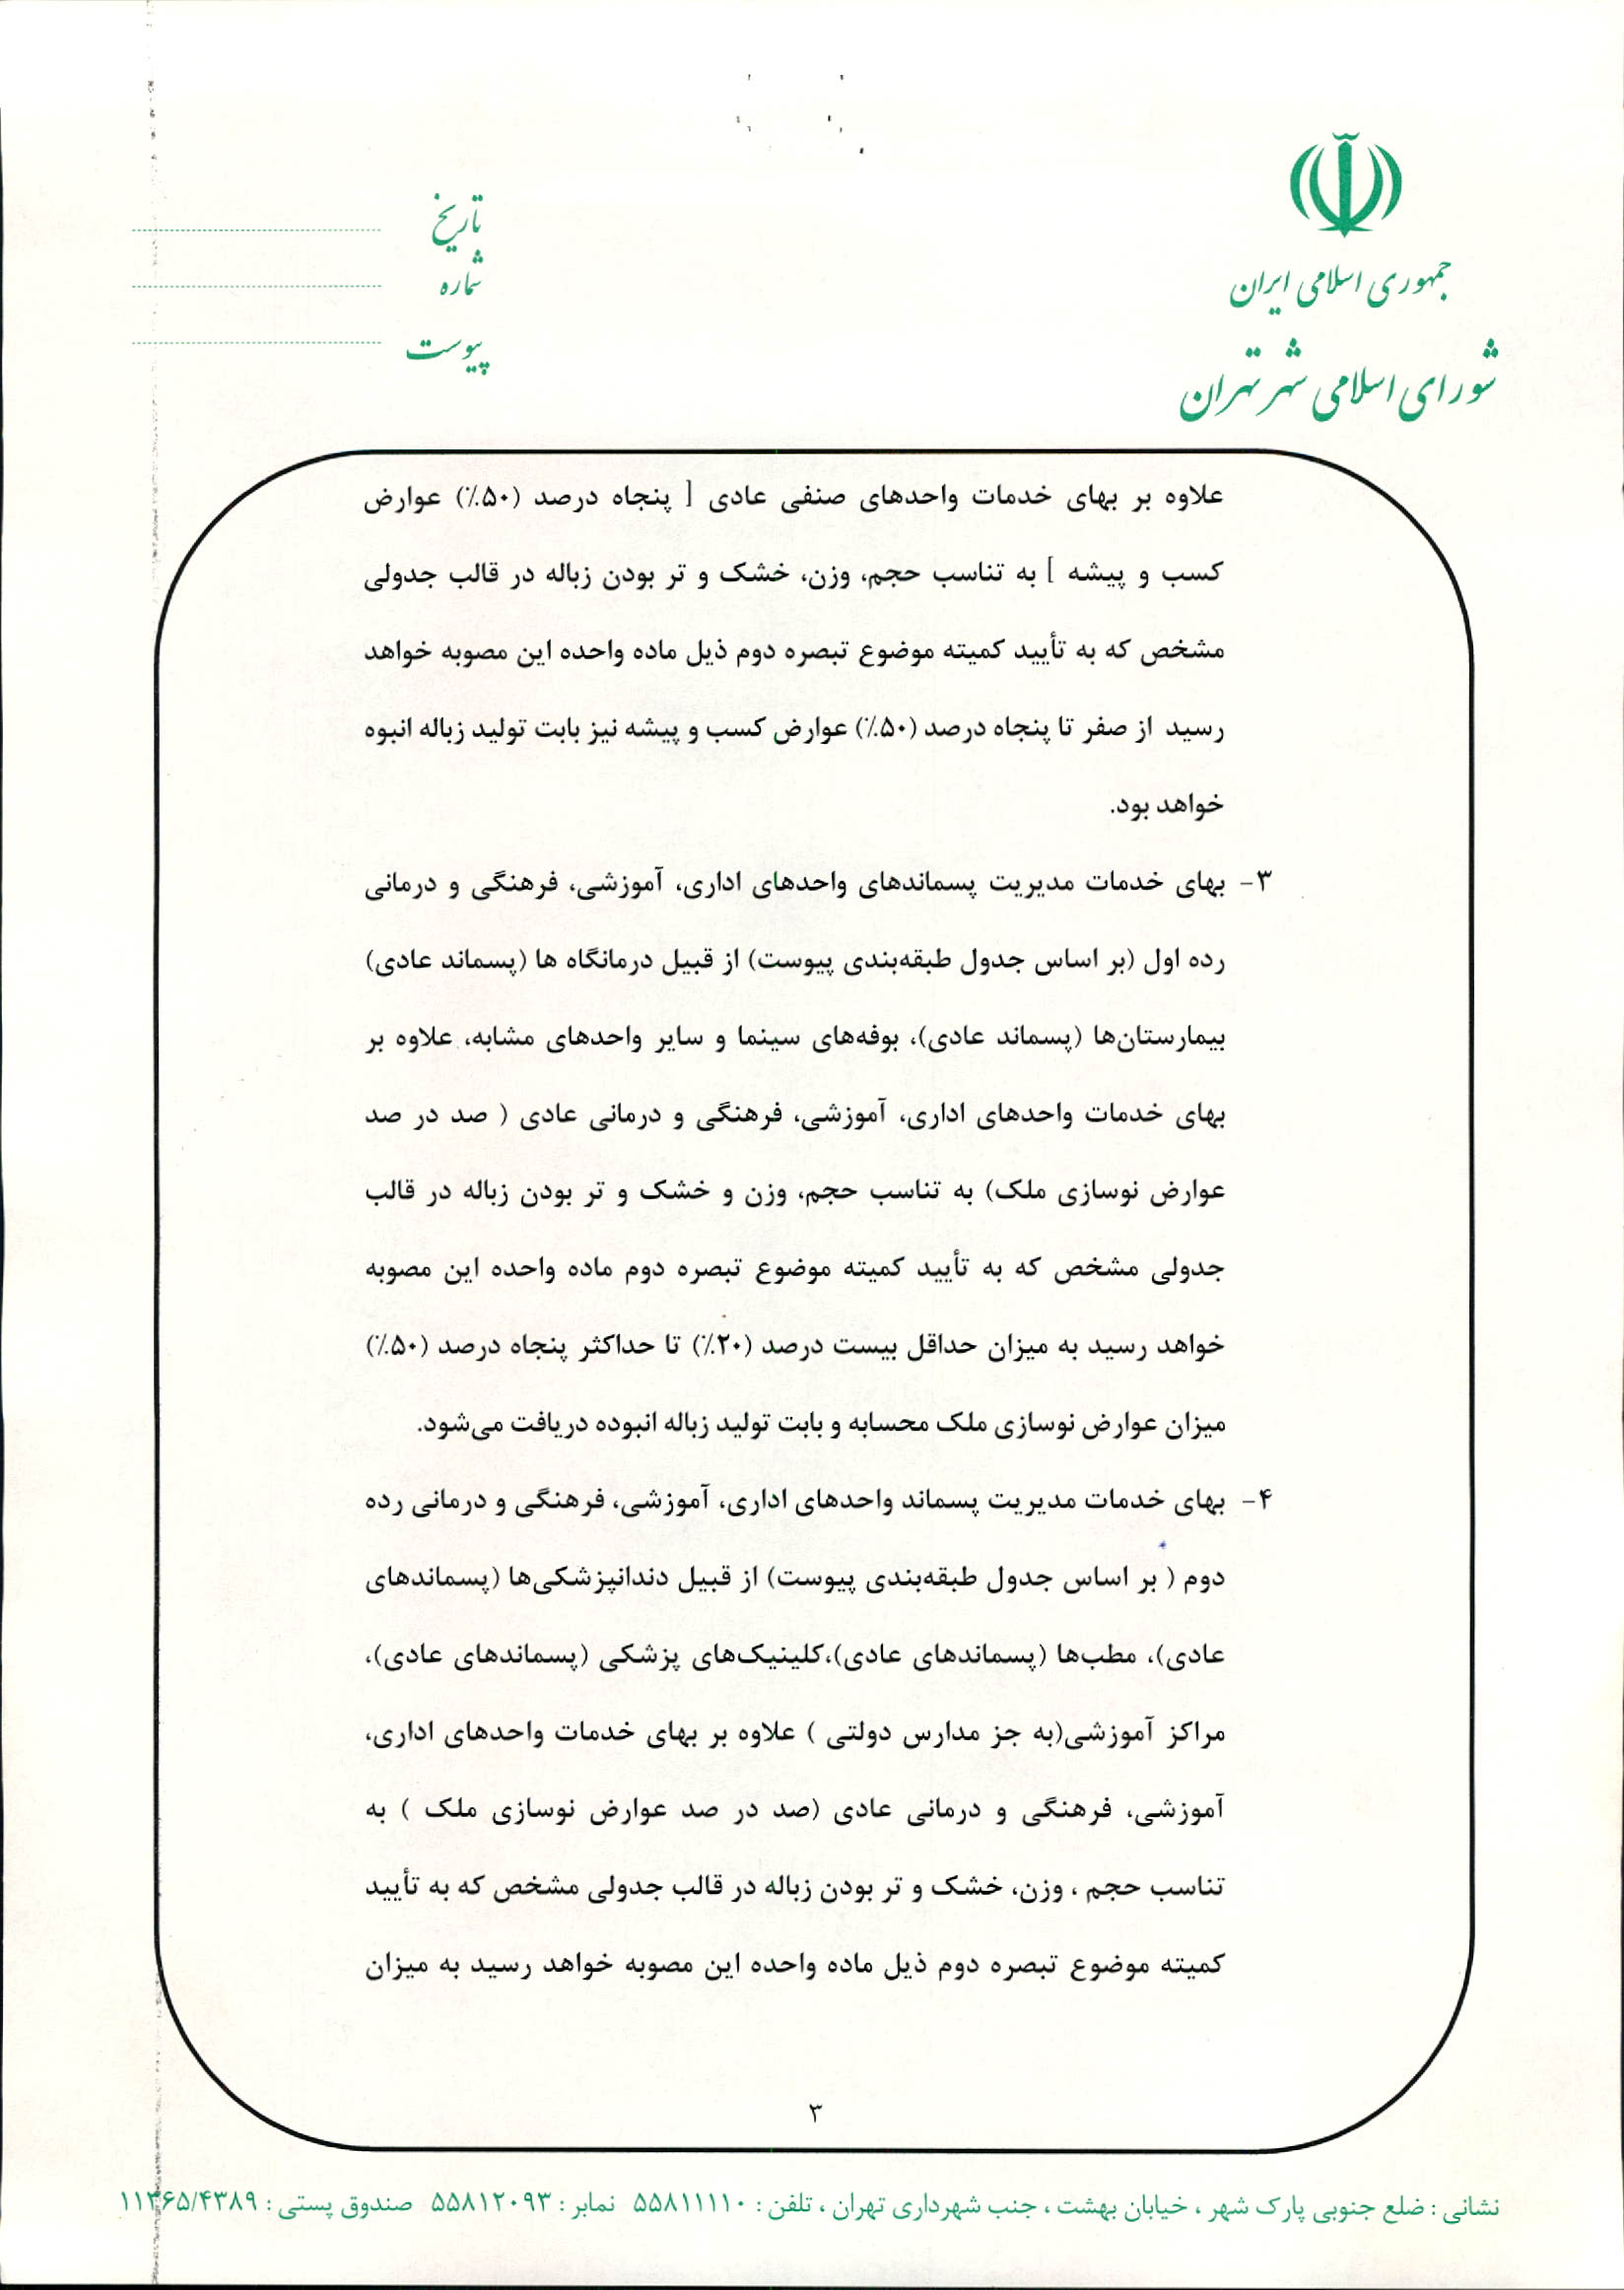 جمهوری اسلامی ایران
شورای اسلامی شهر تهران
تاریخ
شماره
پیوست
علاوه بر بهای خدمات واحدهای صنفی عادی [ پنجاه درصد (۵۰٪) عوارض
کسب و پیشه ] به تناسب حجم، وزن، خشک و تر بودن زباله در قالب جدولی
مشخص که به تأیید کمیته موضوع تبصره دوم ذیل ماده واحده این مصوبه خواهد
رسید از صفر تا پنجاه درصد (۵۰٪) عوارض کسب و پیشه نیز بابت تولید زباله انبوه
خواهد بود.
۳- بهای خدمات مدیریت پسماندهای واحدهای اداری، آموزشی، فرهنگی و درمانی
رده اول (بر اساس جدول طبقه‌بندی پیوست) از قبیل درمانگاه ها (پسماند عادی)
بیمارستان‌ها (پسماند عادی)، بوفه‌های سینما و سایر واحدهای مشابه، علاوه بر
بهای خدمات واحدهای اداری، آموزشی، فرهنگی و درمانی عادی ( صد در صد
عوارض نوسازی ملک) به تناسب حجم، وزن و خشک و تر بودن زباله در قالب
جدولی مشخص که به تأیید کمیته موضوع تبصره دوم ماده واحده این مصوبه
خواهد رسید به میزان حداقل بیست درصد (۲۰٪) تا حداکثر پنجاه درصد (۵۰٪)
میزان عوارض نوسازی ملک محسابه و بابت تولید زباله انبوده دریافت می‌شود.
۴- بهای خدمات مدیریت پسماند واحدهای اداری، آموزشی، فرهنگی و درمانی رده
دوم ( بر اساس جدول طبقه‌بندی پیوست) از قبیل دندانپزشکی‌ها (پسماندهای
عادی)، مطب‌ها (پسماندهای عادی)،کلینیک‌های پزشکی (پسماندهای عادی)،
مراکز آموزشی(به جز مدارس دولتی ) علاوه بر بهای خدمات واحدهای اداری،
آموزشی، فرهنگی و درمانی عادی (صد در صد عوارض نوسازی ملک ) به
تناسب حجم ، وزن، خشک و تر بودن زباله در قالب جدولی مشخص که به تأیید
کمیته موضوع تبصره دوم ذیل ماده واحده این مصوبه خواهد رسید به میزان
۳
نشانی : ضلع جنوبی پارک شهر ، خیابان بهشت ، جنب شهرداری تهران ، تلفن : ۵۵۸۱۱۱۱۰ نمابر : ۵۵۸۱۲۰۹۳ صندوق پستی : ۱۱۳۶۵/۴۳۸۹